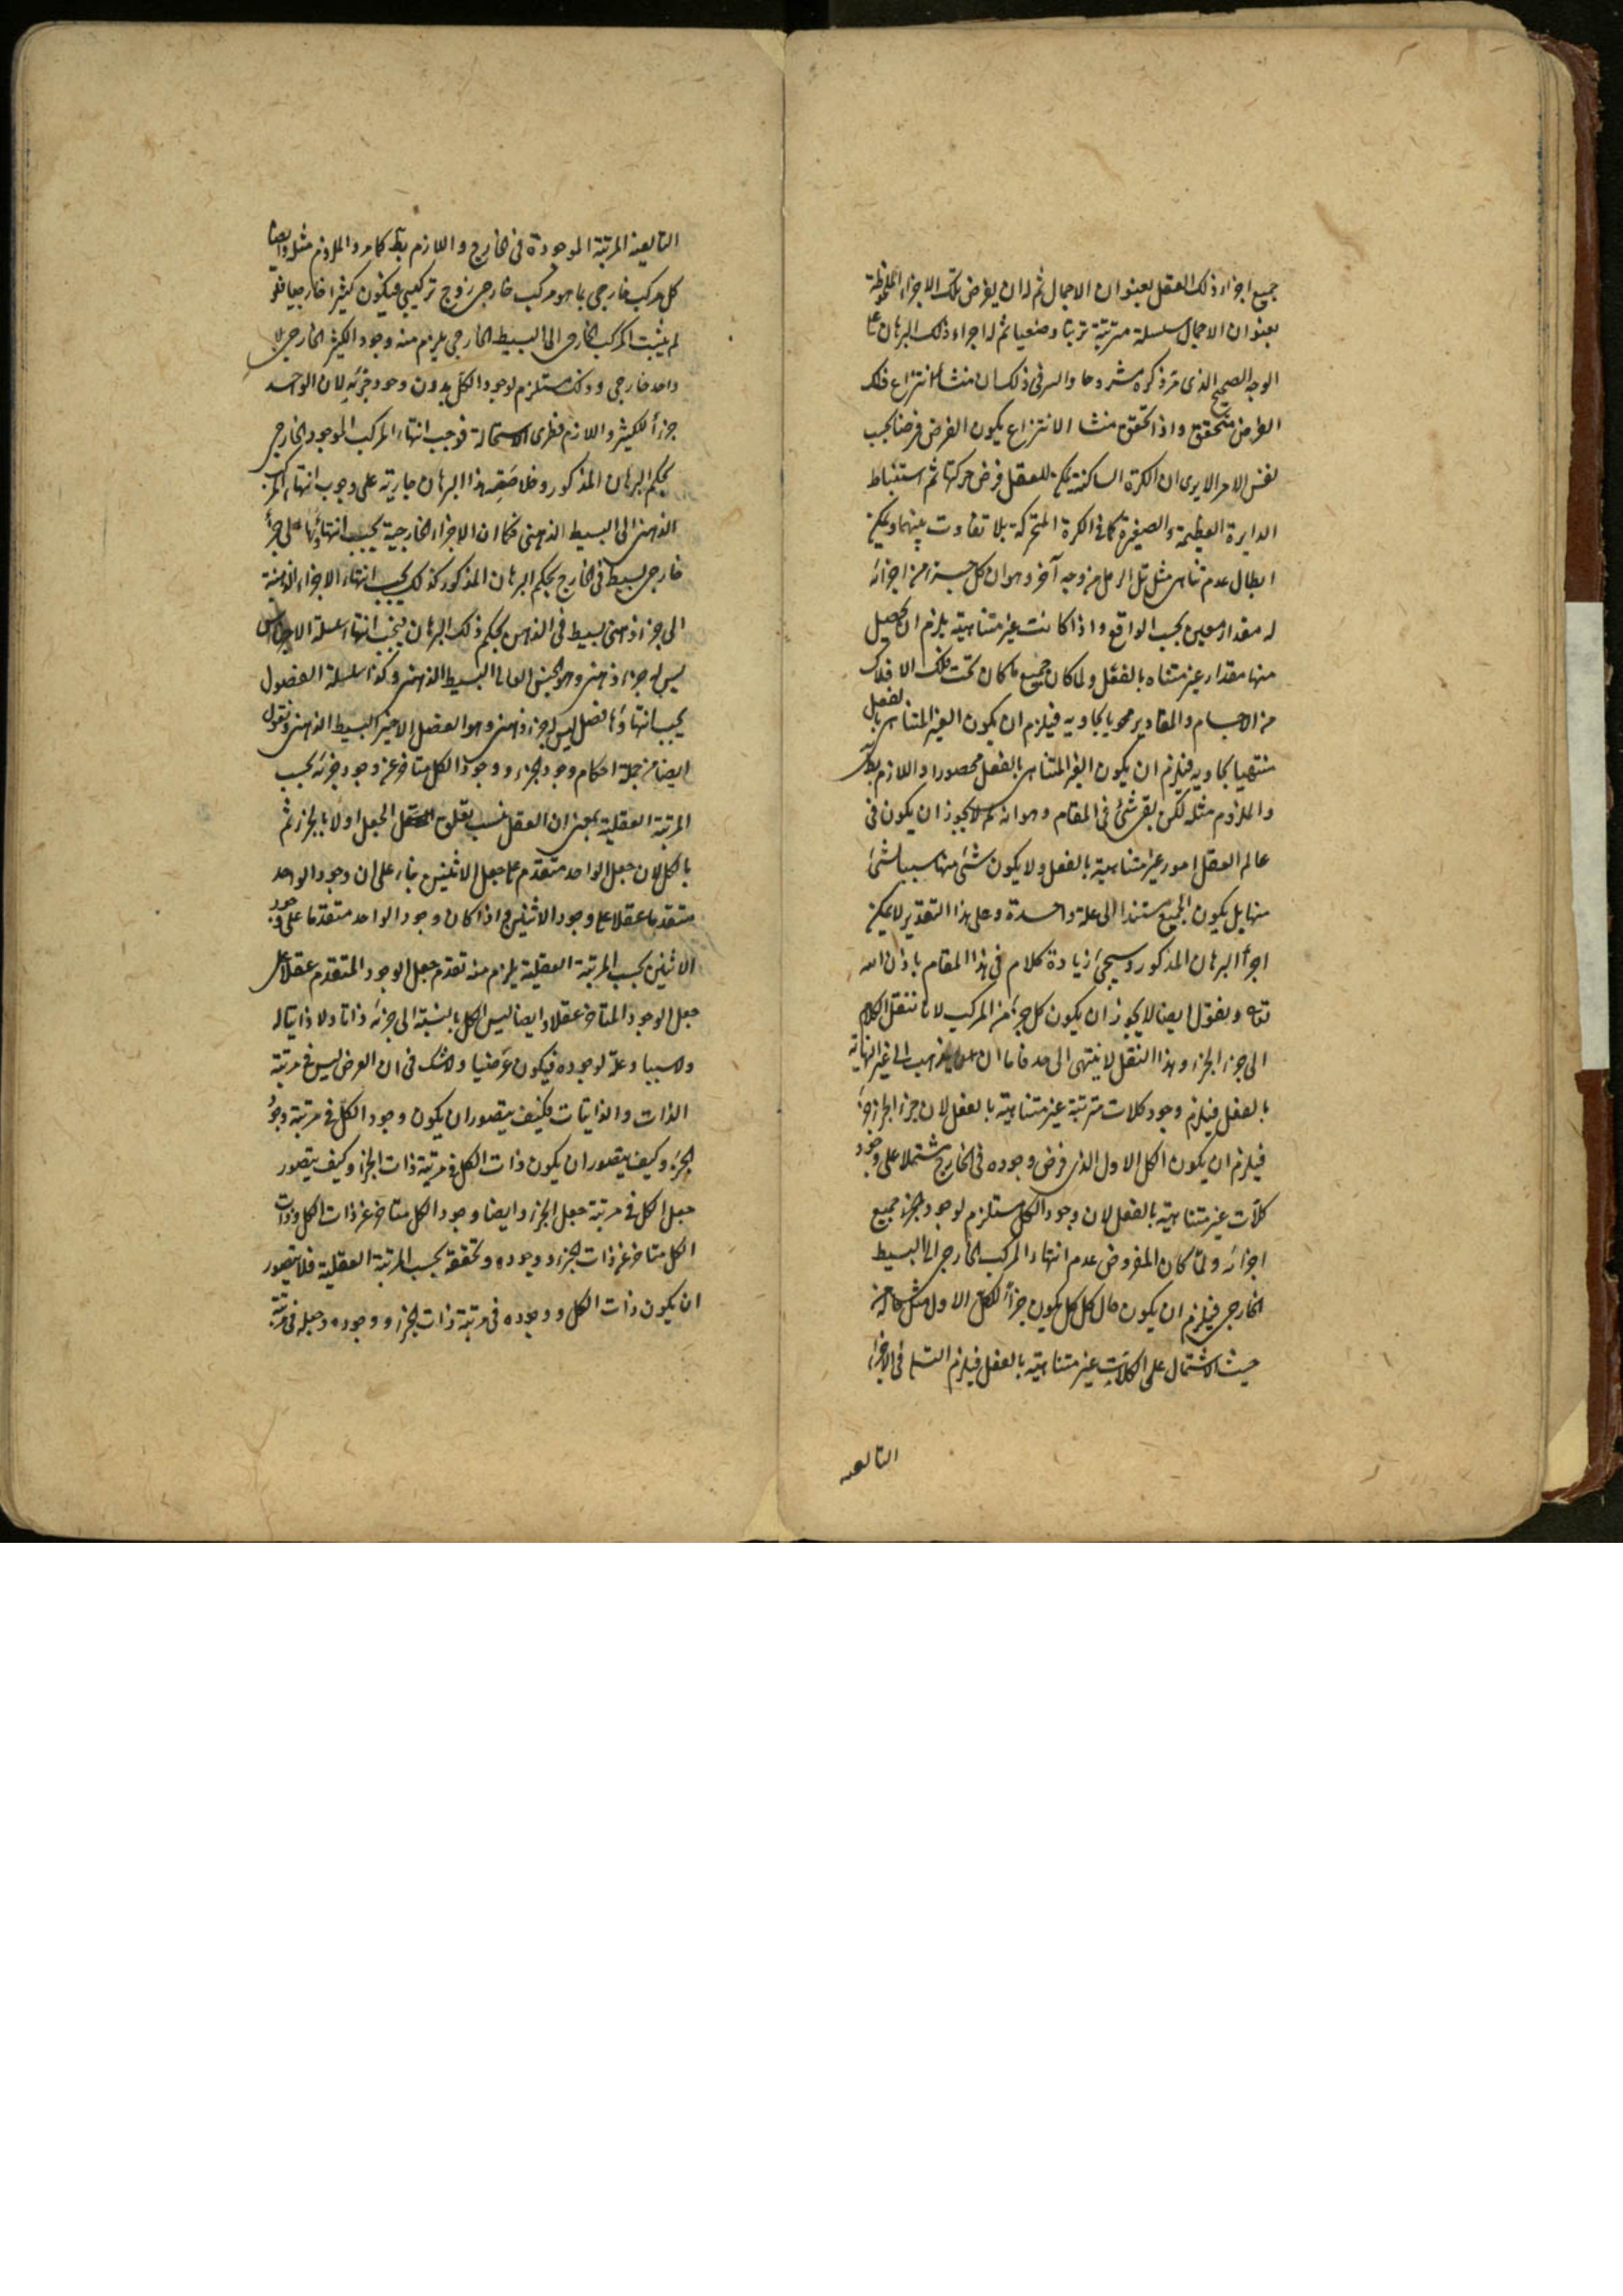 جميع اجزاء ذلك العقل بعنوان الاجمال ثم له ان يفرض تلك الاجزاء الملحوظة
بعنوان الاجمال سلسلة مترتبة ترتبا وضعيا ثم له اجراء ذلك البرهان على
الوجه الصحيح الذى مر ذكره مشروحا والسر فى ذلك ان منشأ انتزاع ذلك
الفرض متحقق واذا تحقق منشا الانتزاع يكون الفرض فرضا بحسب
نفس الامر الا يرى ان الكرة الساكنة يمكن للعقل فرض حركتها ثم استنباط
الدايرة العظيمة والصغيرة كما فى الكرة المتحركة بلا تفاوت بينهما ويمكن
ابطال عدم تناهى مثل تل الرمل من وجه آخر وهو ان كل جزء من اجزائه
له مقدار معين بحسب الواقع واذا كانت غير متناهية يلزم ان يحصل
منها مقدار غير متناه بالفعل ولما كان جميع ما كان تحت فلك الافلاك
من الاجسام والمقادير محويا بحاويه فيلزم ان يكون الغير المتناهى بالفعل
منتهيا بحاويه فيلزم ان يكون الغير المتناهى بالفعل محصورا واللازم بط
والملزوم مثله لكن بقى شئ فى المقام وهو انه لم لا يجوز ان يكون فى
عالم العقل امور غير متناهية بالفعل ولا يكون شئ منها سببا لشئ
منها بل يكون الجميع مستندا الى علة واحدة وعلى هذا التقدير لا يمكن
اجراء البرهان المذكور وسيجئ زيادة كلام فى هذا المقام باذن الله
تعالى ونقول ايضا لا يجوز ان يكون كل جزء من المركب لانا ننقل الكلام
الى جزء الجزء وهذا النقل لا ينتهى الى حد فاما ان يذهب الى غير النهاية
بالفعل فيلزم وجود كلات مترتبة غير متناهية بالفعل لان جزء الجزء جزء
فيلزم ان يكون الكل الاول الذى فرض وجوده فى الخارج مشتملا على وجود
كلات غير متناهية بالفعل لان وجود الكل مستلزم لوجود الجزء جميع
اجزائه ولما كان المفروض عدم انتهاء المركب الخارجى الى البسيط
الخارجى فيلزم ان يكون حال كل كل يكون جزأ للكل الاول مثل حاله من
حيث الاشتمال على الكلات غير متناهية بالفعل فيلزم التس فى الاجزاء
التابعه
التابعية المرتبة الموجودة فى الخارج واللازم بط كما مر والملزوم مثله وايضا
كل مركب خارجى بما هو مركب خارجى زوج تركيبى فيكون كثيرا خارجيا فلو
لم يثبت المركب الخارجى الى البسيط الخارجى يلزم منه وجود الكثير الخارجى بلا
واحد خارجى وذلك مستلزم لوجود الكل بدون وجود جزئه لان الواحد
جزأ للكثير واللازم فطرى الاستحالة فوجب انتهاء المركب الموجود الخارجى
بحكم البرهان المذكور وخلاصة هذا البرهان جارية على وجوب انتهاء المركب
الذهنى الى البسيط الذهنى فكما ان الاجزاء الخارجية يجب انتهاؤها على جزأ
خارجى بسيط فى الخارج بحكم البرهان المذكور كذلك يجب انتهاء الاجزاء الذهنية
الى جزء ذهنى بسيط فى الذهن بحكم ذلك البرهان فيجب انتهاء سلسلة الاجناس
ليس له جزء ذهنى وهو الجنس العالى البسيط الذهنى وكذا سلسلة الفصول
يجب انتهاؤها فصل ليس له جزء ذهنى وهو الفصل الاخير البسيط الذهنى ونقول
ايضا من جملة احكام وجود الجزء ووجود الكل متاخر عن وجود جزئه بحسب
المرتبة العقلية بمعنى ان العقل ينسب تعلق الجعل اولا بالجزء ثم
بالكل لان جعل الواحد متقدم على جعل الاثنين بناء على ان وجود الواحد
متقدما عقلا على وجود الاثنين فاذا كان وجود الواحد متقدما على وجود
الاثنين بحسب المرتبة العقلية يلزم منه تقدم جعل الوجود المتقدم عقلا على
جعل الوجود المتاخر عقلا وايضا ليس الكل بالنسبة الى جزئه ذاتا ولا ذاتيا له
ولا سببا وعلة لوجوده فيكون عرضيا ولا شك فى ان العرض ليس فى مرتبة
الذات والذاتيات فكيف يتصور ان يكون وجود الكل فى مرتبة وجود
الجزء وكيف يتصور ان يكون ذات الكل فى مرتبة ذات الجزء وكيف يتصور
جعل الكل فى مرتبة جعل الجزء وايضا وجود الكل متاخر عن ذات الكل وذات
الكل متاخر عن ذات الجزء ووجوده وتحققه بحسب المرتبة العقلية فلا يتصور
ان يكون ذات الكل ووجوده فى مرتبة ذات الجزء ووجوده وجعله فى مرتبة